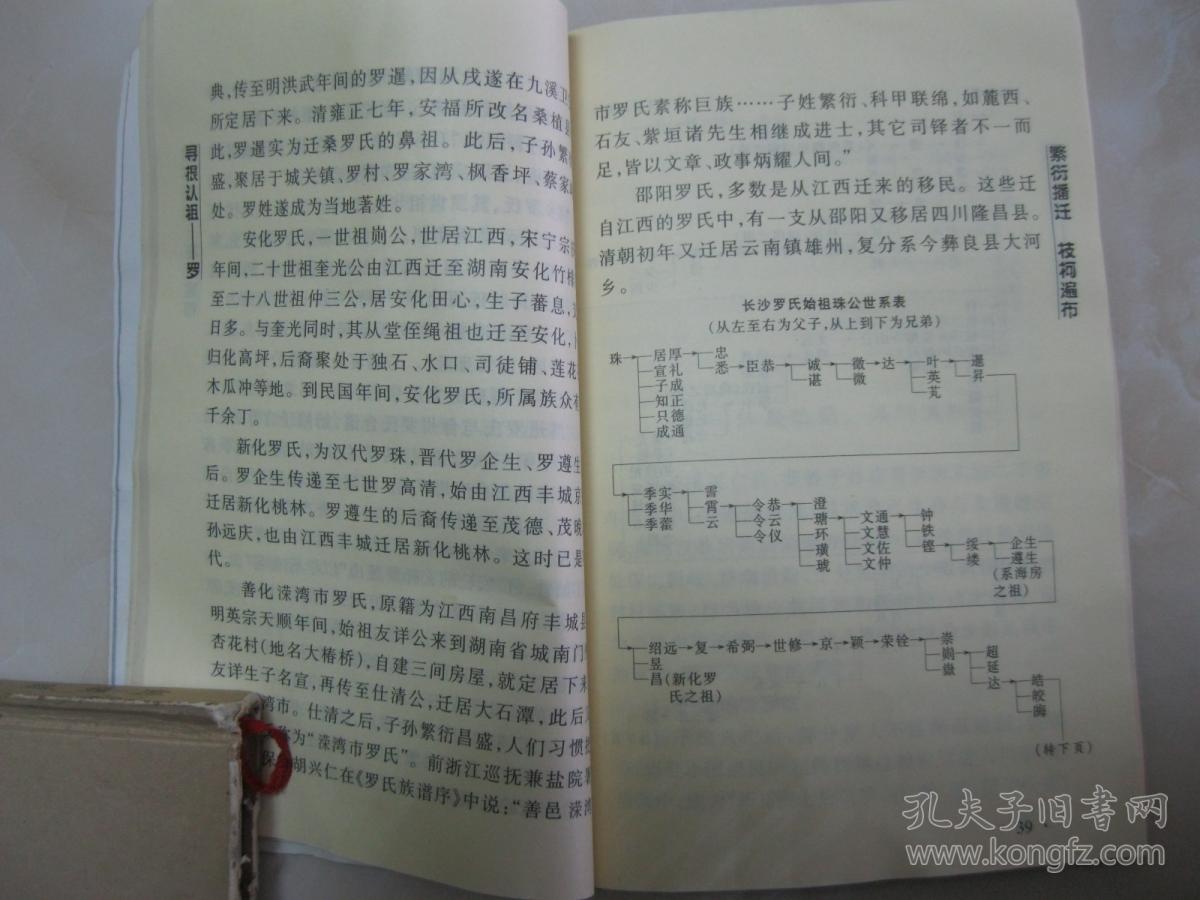 典,传至明洪武年间的罗暹,因从戍遂在九溪卫
所定居下来。清雍正七年,安福所改名桑植县
此,罗暹实为迁桑罗氏的鼻祖。此后,子孙繁
盛,聚居于城关镇、罗村、罗家湾、枫香坪、蔡家
处。罗姓遂成为当地著姓。
安化罗氏,一世祖勋公,世居江西,宋宁宗
年间,二十世祖奎光公由江西迁至湖南安化竹
至二十八世祖仲三公,居安化田心,生子蕃息,
日多。与奎光同时,其从堂侄绳祖也迁至安化,
归化高坪,后裔聚处于独石、水口、司徒铺、莲花
木瓜冲等地。到民国年间,安化罗氏,所属族众
千余丁。
新化罗氏,为汉代罗珠,晋代罗企生、罗遵生
后。罗企生传递至七世罗高清,始由江西丰城
迁居新化桃林。罗遵生的后裔传递至茂德、茂
孙远庆,也由江西丰城迁居新化桃林。这时已是
代。
善化溁湾市罗氏,原籍为江西南昌府丰城县
明英宗天顺年间,始祖友详公来到湖南省城南门
杏花村(地名大椿桥),自建三间房屋,就定居下来
友详生子名宣,再传至仕清公,迁居大石潭,此后
湾市。仕清之后,子孙繁衍昌盛,人们习惯
称为“溁湾市罗氏”。前浙江巡抚兼盐院
保 胡兴仁在《罗氏族谱序》中说:“善邑溁湾
寻根认祖——罗
市罗氏素称巨族……子姓繁衍、科甲联绵,如麓西、
石友、紫垣诸先生相继成进士,其它司铎者不一而
足,皆以文章、政事炳耀人间。”
邵阳罗氏,多数是从江西迁来的移民。这些迁
自江西的罗氏中,有一支从邵阳又移居四川隆昌县。
清朝初年又迁居云南镇雄州,复分系今彝良县大河
乡。
长沙罗氏始祖珠公世系表
(从左至右为父子,从上到下为兄弟)
珠 居厚 忠 臣恭 诚 微 达 叶 暹
宣礼 悉 谌 微 英 昇
子成 芃
知正
只德
成通
季实 霄 令恭 澄 文通 钟 绥 企生
季华 霄 令云 瑭 文慧 铁 缕 遵生
季藿 云 令仪 环 文佐 铿 (系海房
璜 文仲 之祖)
琥
绍远 复 希弼 世修 京 颖 荣铨 崇 超 皓
昱 勋 延 皎
昌(新化罗 达 晦
氏之祖)
(转下页)
繁衍播迁——枝柯遍布
39
孔夫子旧书网
www.kongfz.com